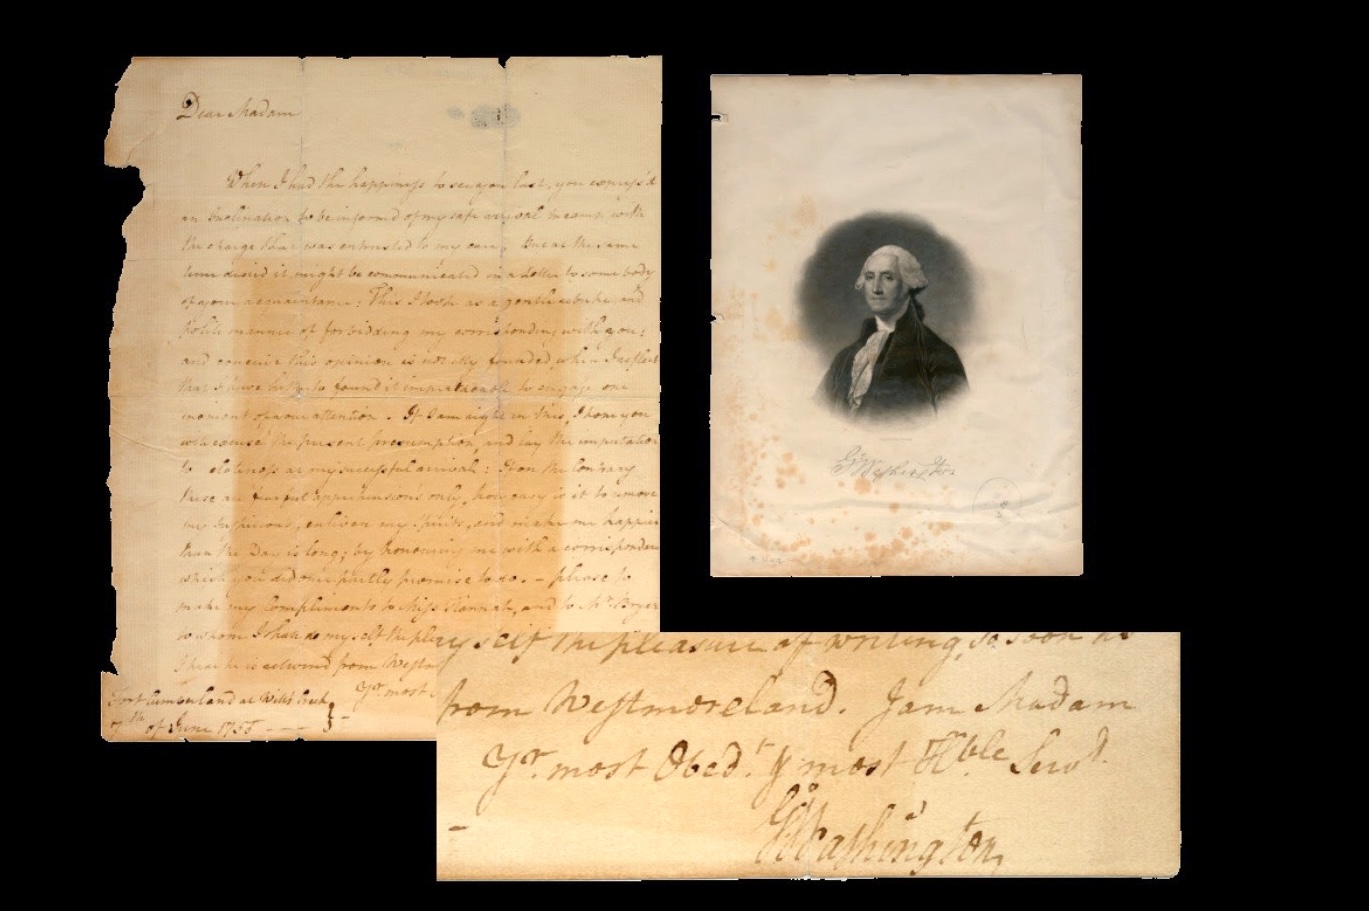 Dear Madam
When I had the happiness to see you last, you express'd
an Inclination to be informd of my safe arrival in camp with
the charge that was entrusted to my care; But at the same
time desird it might be communicated in a letter to some body
of your acquaintance: This I took as a gentle rebuke and
polite manner of forbidding my corrisponding with you;
and conceive this opinion is not illy founded when I reflect
that I have hitherto found it impracticable to engage one
moment of your attention. If I am right in this, I hope you
will excuse the present presumption, and lay the imputation
to elateness at my successful arrival: If on the contrary
these are fearful apprehensions only, how easy is it to remove
my suspicions, enliven my Spirits, and make me happier
than the Day is long; by honouring me with a corrispondence
which you did once partly promise to do. - please to
make my Compliments to Miss Hannah, and to Mr. Bryan
to whom I shall do myself the plea
I hear he is returnd from Westmo
Yr. most
Fort Cumberland at Wills Creek
7th of June 1755
yself the pleasure of writing, so soon as
from Westmoreland. I am Madam
Yr. most Obedt. & most Hble Servt.
G Washington
G Washington